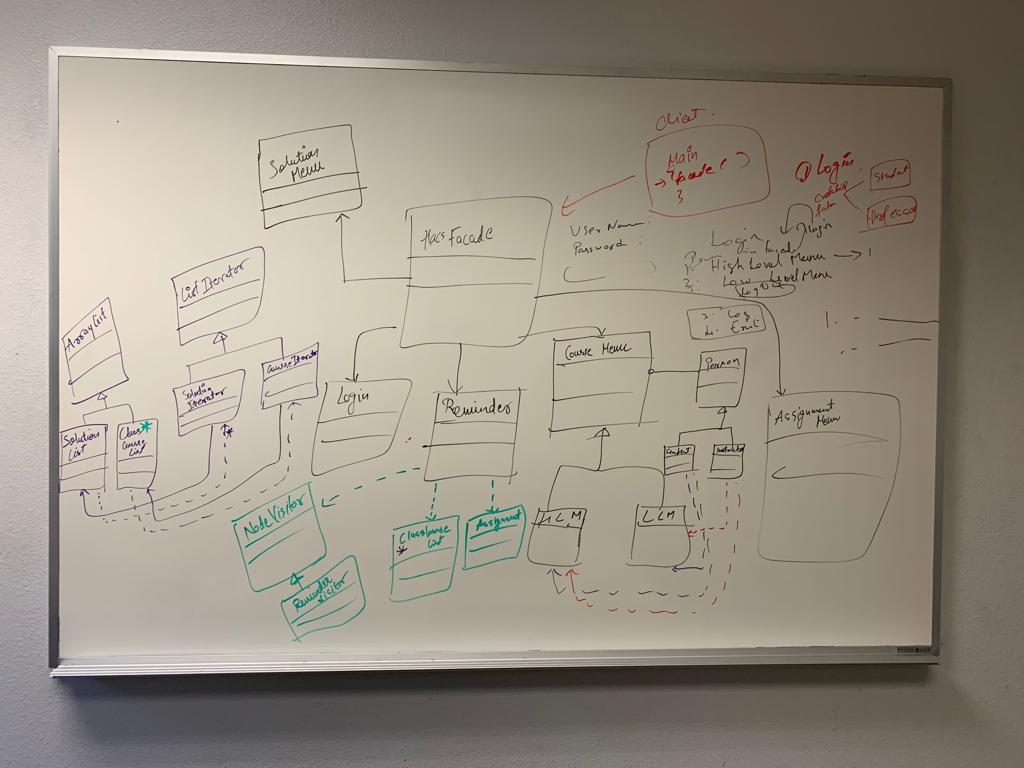 Client
Main
{
→ facade ( )
}
① Login
Student
Professor
Solution
Menu
Hacs Facade
User Name :
Password :
Login
Login
1.
High Level Menu → 1
2.
Low Level Menu
LogOut
3. Log
4. Exit
1. -
List Iterator
ArrayList
Solution
Iterator
CourseIterator
Solution
List
Class
Course
List
*
*
Login
Reminder
Course Menu
Person
Student
Instructor
Assignment
Menu
HLM
LLM
NodeVisitor
Reminder
Visitor
ClassCourse
List
*
Assignment